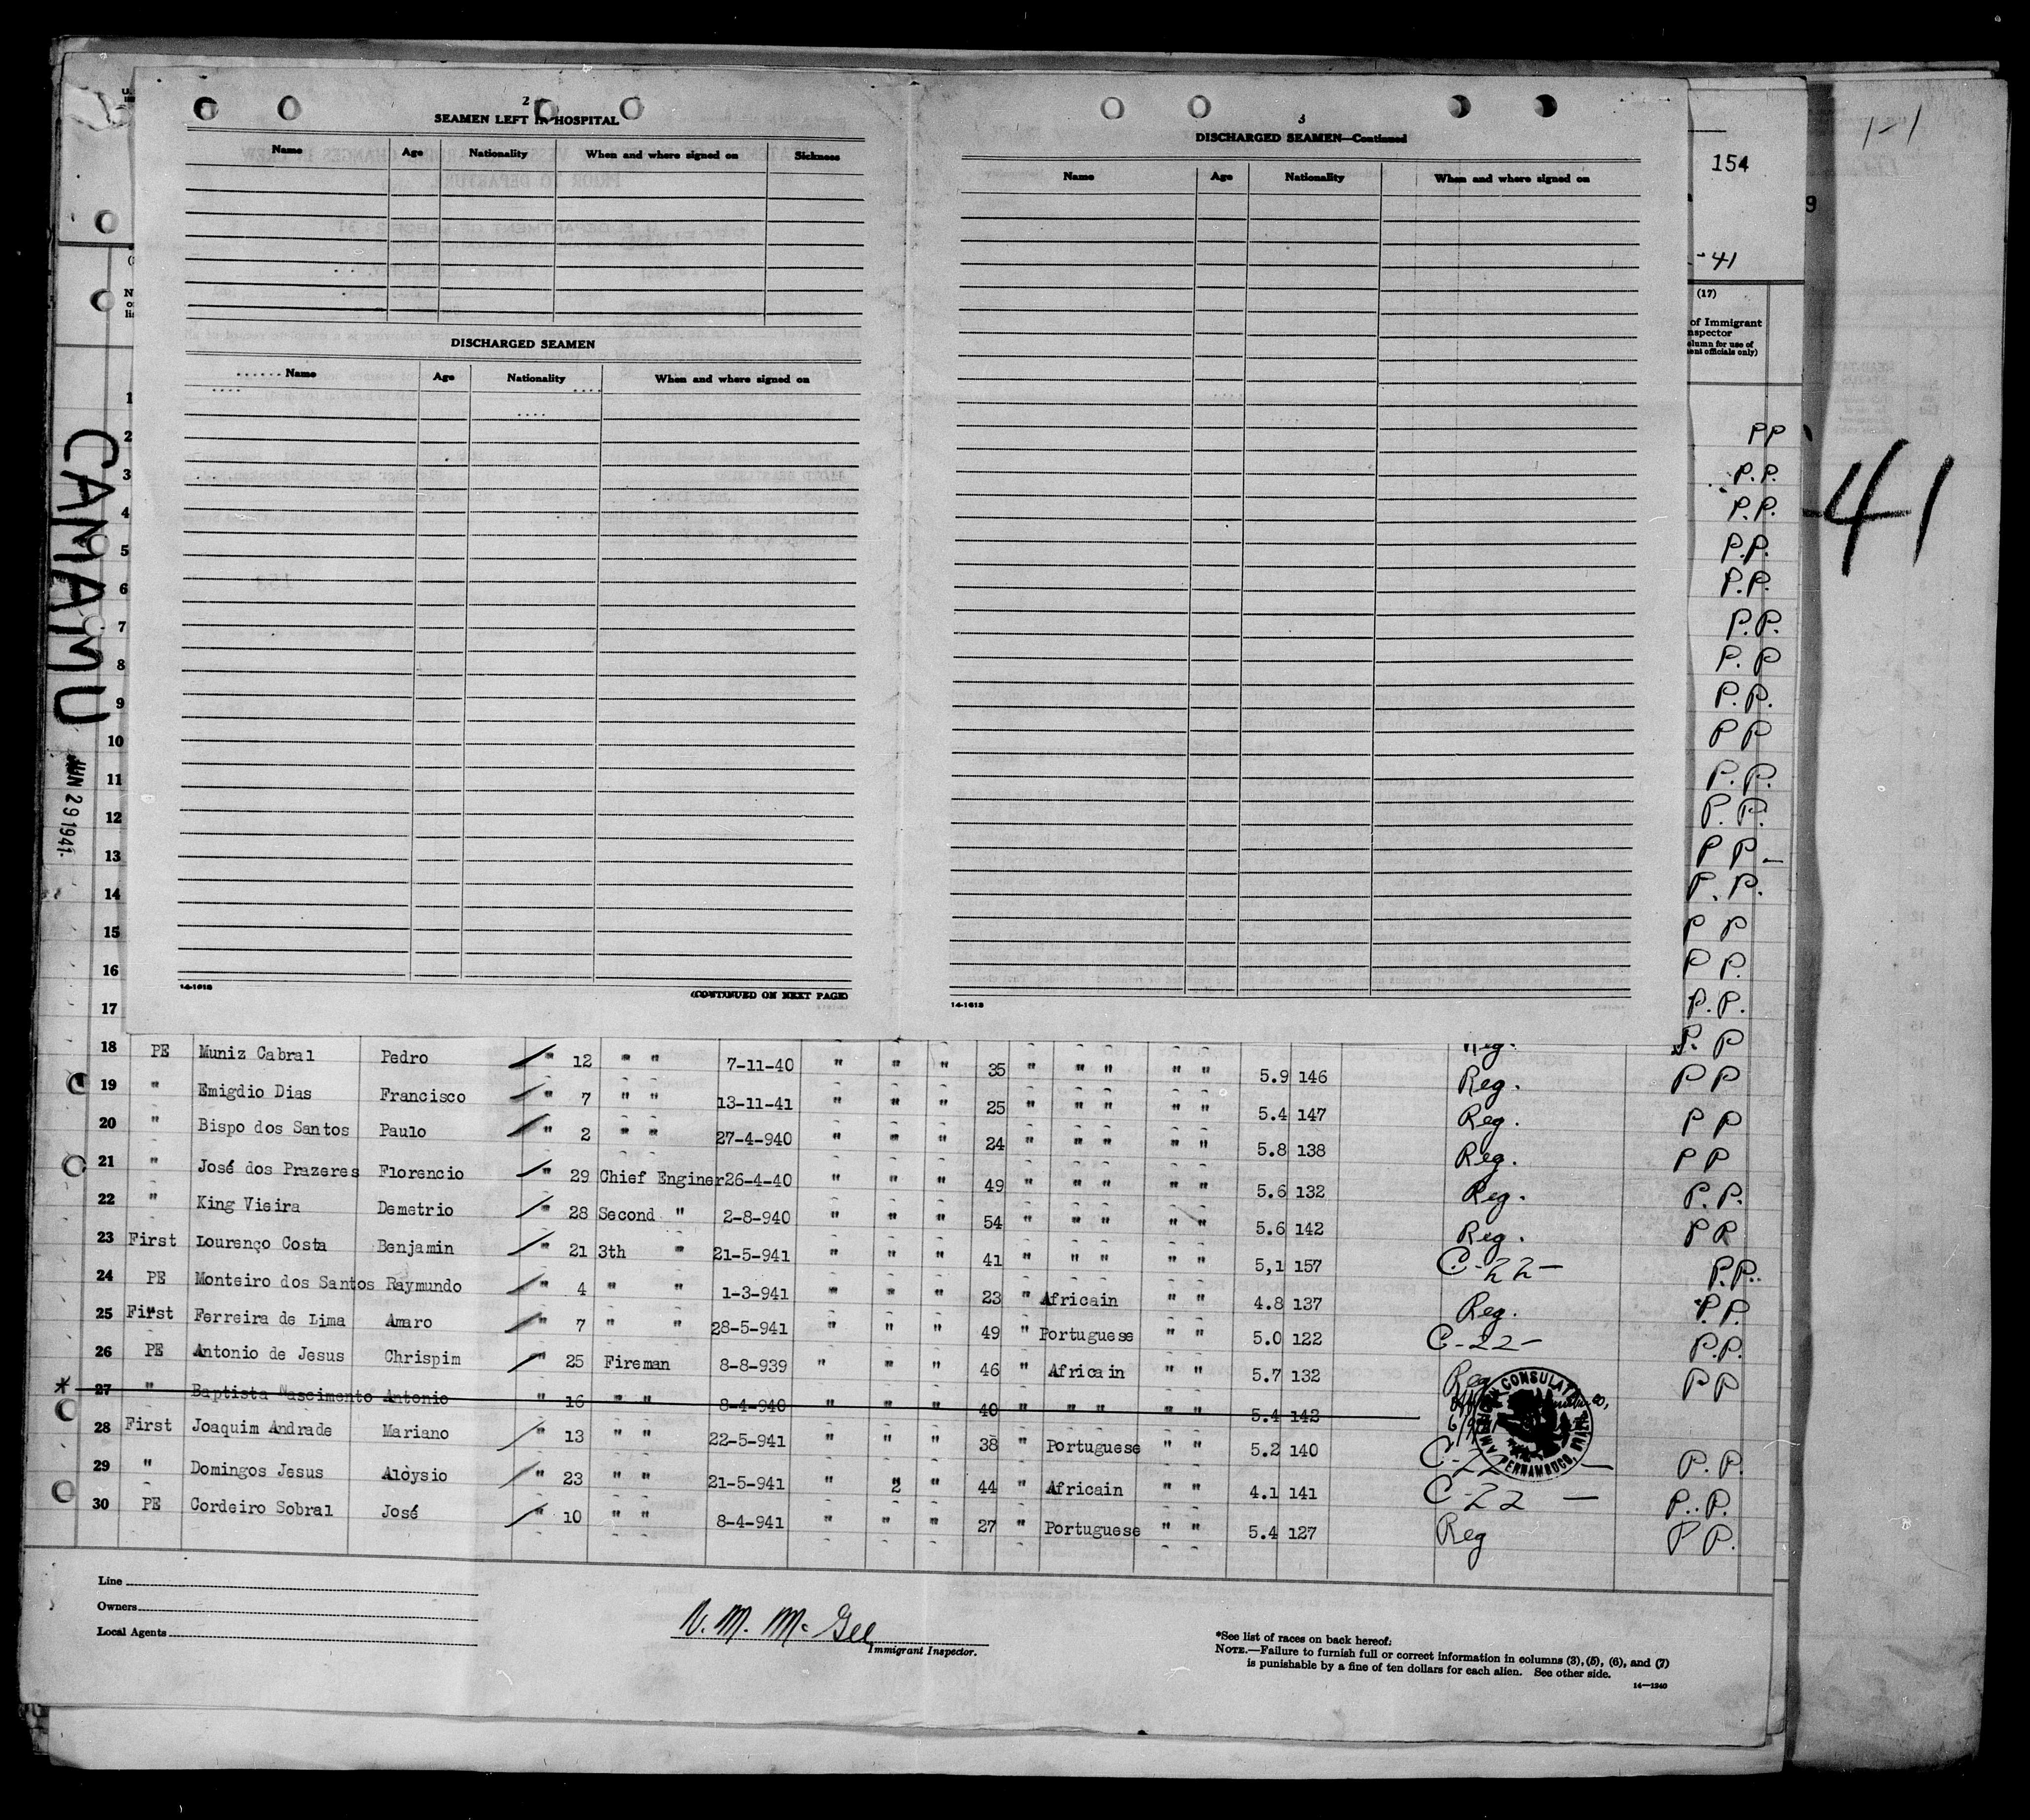 2
SEAMEN LEFT IN HOSPITAL
Name Age Nationality When and where signed on Sickness
DISCHARGED SEAMEN
Name Age Nationality When and where signed on
14-1618
(CONTINUED ON NEXT PAGE)
3
DISCHARGED SEAMEN—Continued
Name Age Nationality When and where signed on
14-1618
154
-41
(17)
of Immigrant
nspector
olumn for use of
ent officials only)
1-1
9
41
CAMAMU
JUN 29 1941
1
2 PP
3 P.P.
4 P.P.
5 P.P.
6 P.P.
7 P.P.
8 P.P
9 P.P.
10 PP
11 P.P.
12 P.P.
13 PP-
14 P.P.
15 PP
16 PP.
17 P.P.
18 PE Muniz Cabral Pedro " 12 " " 7-11-40 " " " 35 " " " " " 5.9 146 Reg. P.P
19 " Emigdio Dias Francisco " 7 " " 13-11-41 " " " 25 " " " " " 5.4 147 Reg. PP
20 " Bispo dos Santos Paulo " 2 " " 27-4-940 " " " 24 " " " " " 5.8 138 Reg. PP
21 " José dos Prazeres Florencio " 29 Chief Enginer 26-4-40 " " " 49 " " " " " 5.6 132 Reg. PP
22 " King Vieira Demetrio " 28 Second " 2-8-940 " " " 54 " " " " " 5.6 142 Reg. P.P.
23 First Lourenço Costa Benjamin " 21 3th " 21-5-941 " " " 41 " " " " " 5,1 157 C-22- P.P.
24 PE Monteiro dos Santos Raymundo " 4 " " 1-3-941 " " " 23 " Africain " " 4.8 137 Reg. P.P.
25 First Ferreira de Lima Amaro " 7 " " 28-5-941 " " " 49 " Portuguese " " 5.0 122 C-22- P.P.
26 PE Antonio de Jesus Chrispim " 25 Fireman 8-8-939 " " " 46 " Africain " " 5.7 132 Reg PP
* 27 " Baptista Nascimento Antonio " 16 " " 8-4-940 " " " 40 " " " " " 5.4 142
AMERICAN CONSULATE
PERNAMBUCO,
28 First Joaquim Andrade Mariano " 13 " " 22-5-941 " " " 38 " Portuguese " " 5.2 140 C-22- P.P.
29 " Domingos Jesus Aloysio " 23 " " 21-5-941 " 2 " 44 " Africain " " 4.1 141 C-22 - P.P.
30 PE Cordeiro Sobral José " 10 " " 8-4-941 " " " 27 " Portuguese " " 5.4 127 Reg PP.
Line
Owners
Local Agents
V. M. McGee
Immigrant Inspector.
*See list of races on back hereof.
NOTE.—Failure to furnish full or correct information in columns (3), (5), (6), and (7)
is punishable by a fine of ten dollars for each alien. See other side.
14—1240